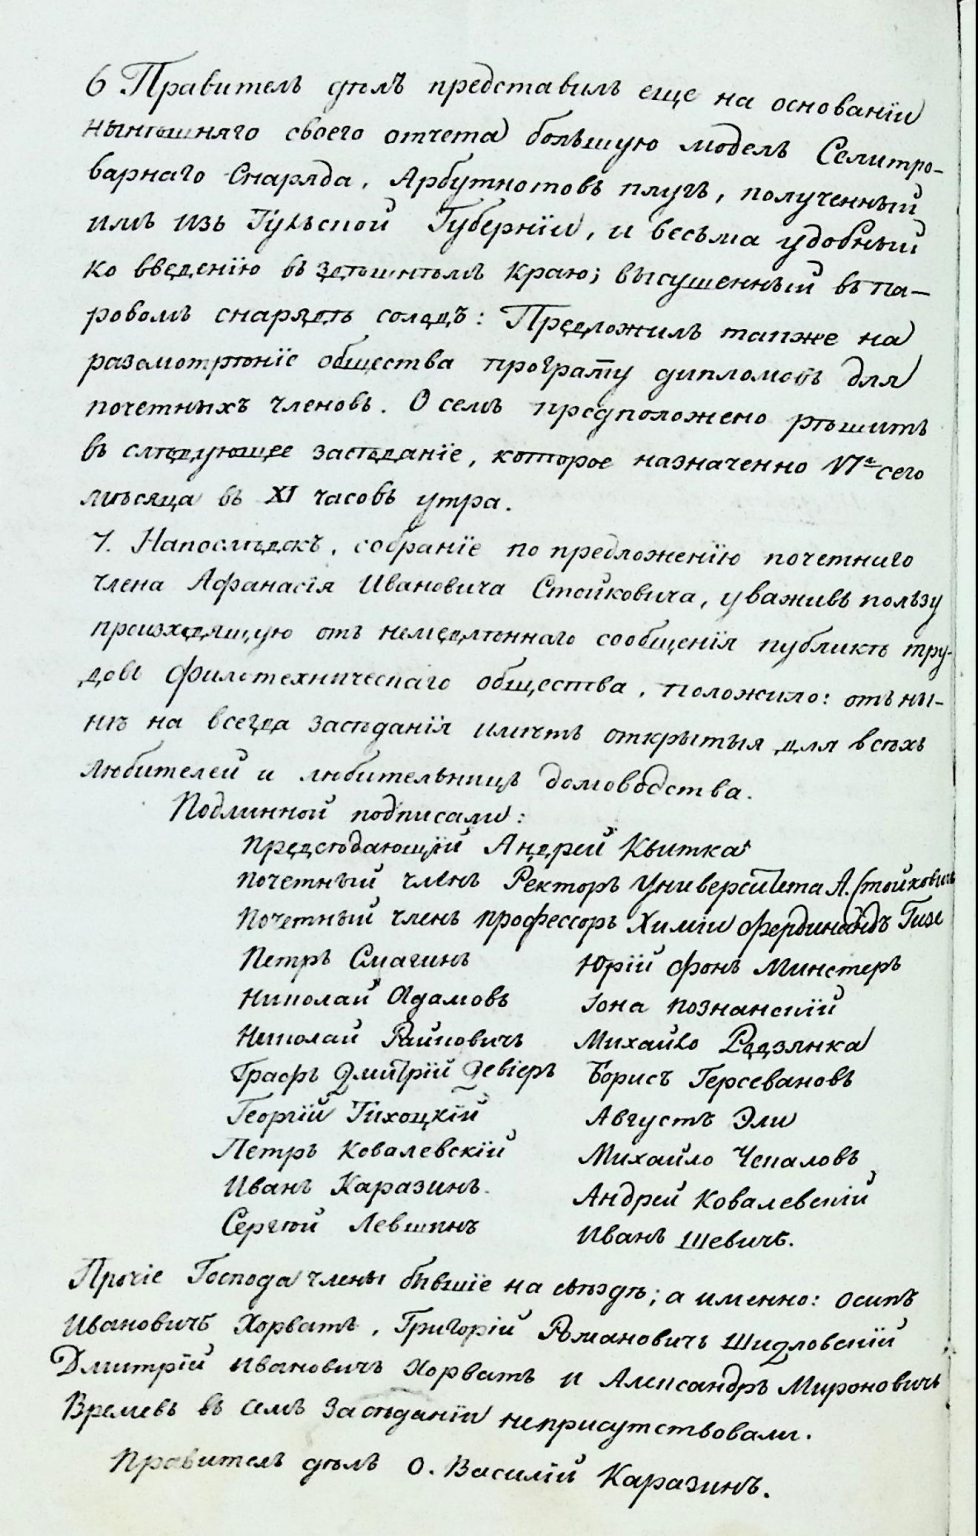 6 Правитель дѣлъ представилъ еще на основаніи
нынѣшняго своего отчета большую модель Селитро-
варнаго Снаряда, Арбутнотовъ плугъ, полученный
имъ изъ Тульской Губерніи, и весьма удобный
ко введенію въ здѣшнѣмъ краю; высушенный въ па-
ровомъ снарядѣ солодъ: Предложилъ также на
разсмотрѣніе общества програму дипломовъ для
почетныхъ членовъ. О семъ предположено рѣшить
въ слѣдующее засѣданіе, которое назначенно VIго сего
мѣсяца въ XI часовъ утра.
7. Напослѣдокъ, собраніе по предложенію почетнаго
члена Афанасія Ивановича Стойковича, уваживъ пользу
произходящую отъ немедлѣннаго сообщенія публикѣ тру-
довъ Филотехническаго общества, положило: отъ ны-
нѣ на всегда засѣданія имѣть открытыя для всѣхъ
любителей и любительницъ домоводства.
Подлинной подписали:
Предсѣдающій Андрей Квитка
Почетный членъ Ректоръ Университета А. Стойковичь
Почетный членъ профессоръ Химіи Фердинандъ Гизе
Петръ Смагинъ Юрій фонъ Минстеръ
Николай Адамовъ Іона Познанскій
Николай Райковичъ Михайло Родзянка
Графъ Дмитрій Девіеръ Борисъ Герсевановъ
Георгій Тихоцкій Августъ Эли
Петръ Ковалевскій Михайло Чепаловъ
Иванъ Каразинъ. Андрей Ковалевскій
Сергѣй Левшинъ Иванъ Шевичъ.
Прочіе Господа члены бывшіе на съѣздѣ; а именно: Осипъ
Ивановичъ Хорватъ, Григорій Романовичъ Шидловскій
Дмитрій Ивановичъ Хорватъ и Александръ Мироновичь
Времевъ въ семъ Засѣданіи неприсутствовали.
Правитель дѣлъ О. Василій Каразинъ.